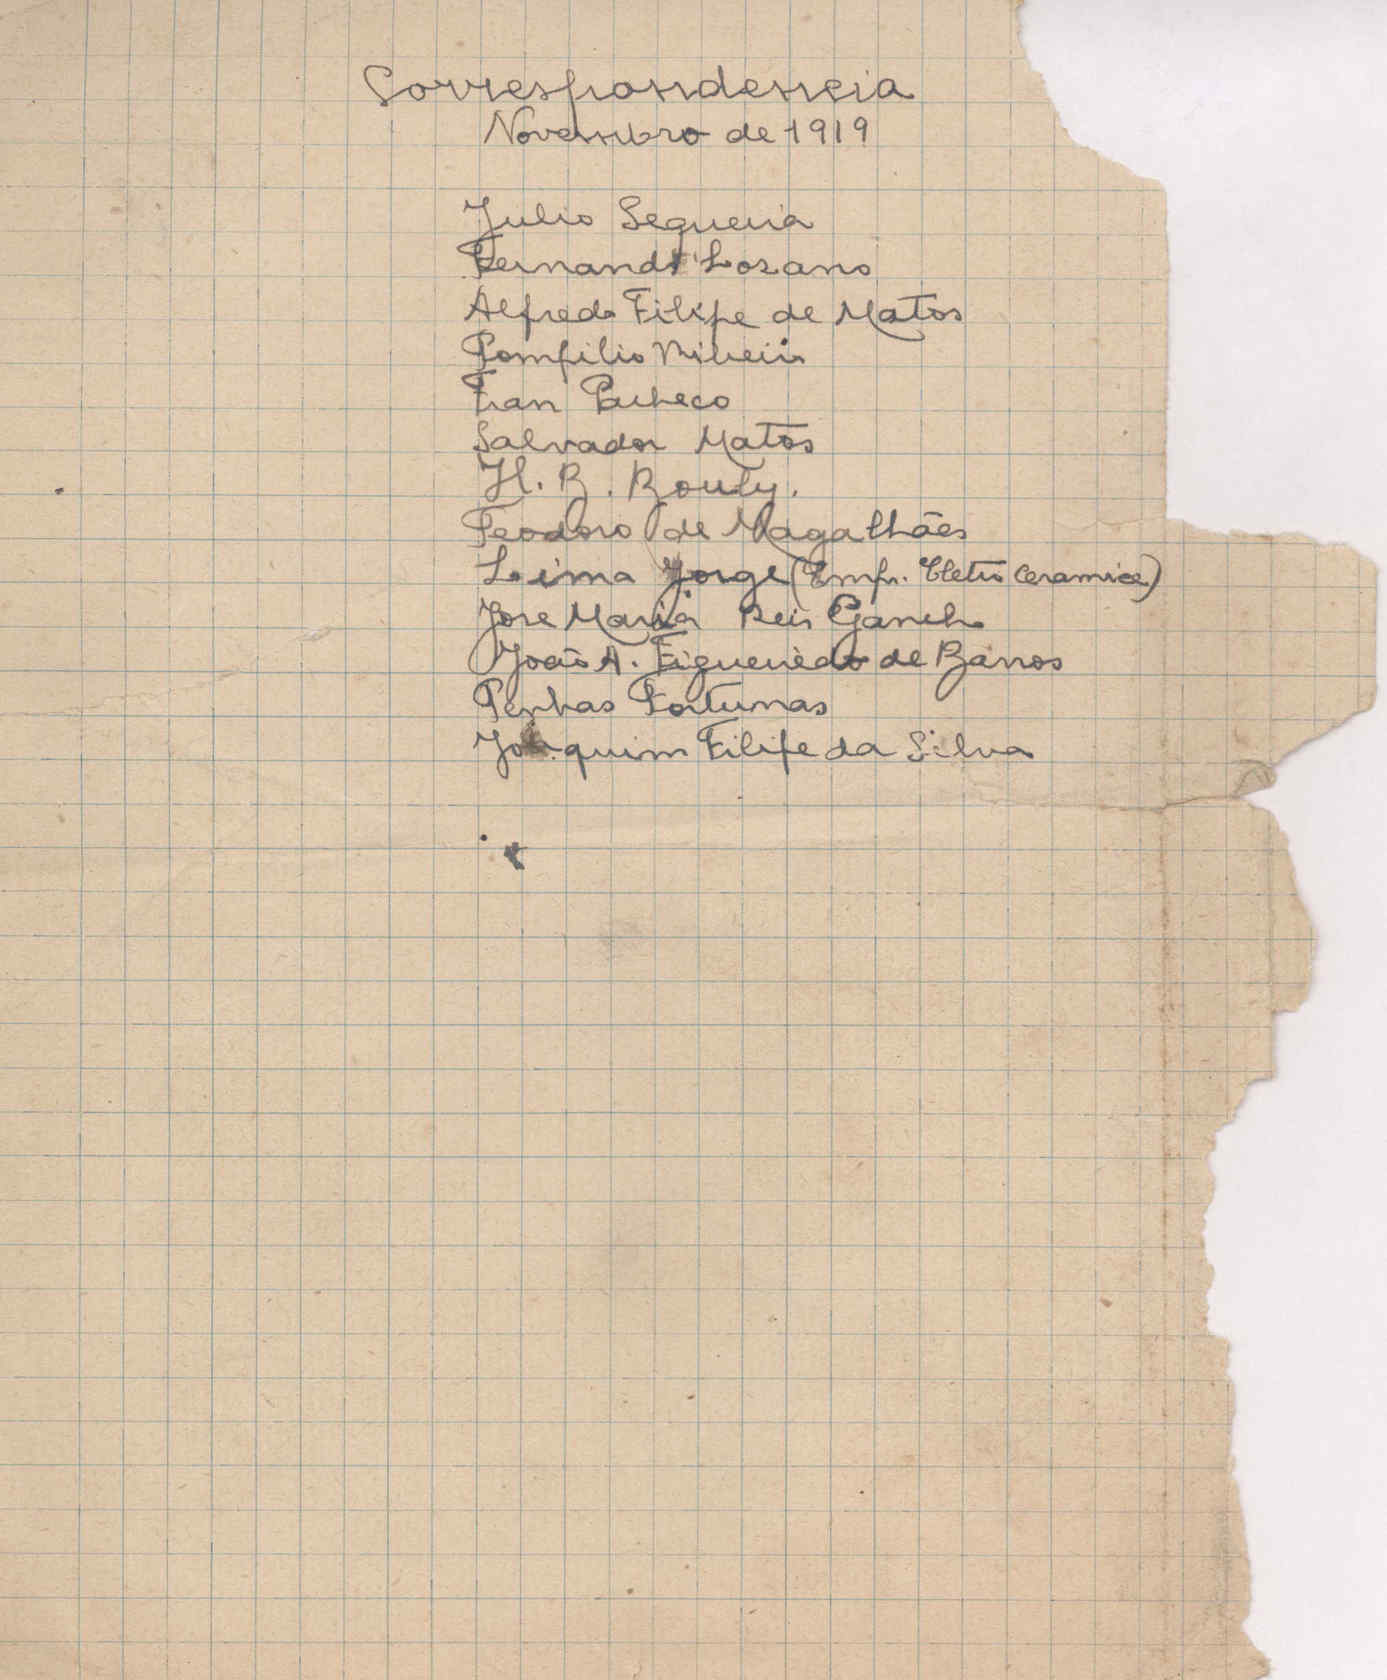 Correspondencia
Novembro de 1919
Julio Sequeira
Fernando Lozano
Alfredo Filipe de Matos
Pompilio Ribeiro
Fran Pacheco
Salvador Matos
H. B. Bouly.
Teodoro de Magalhães
Lima Jorge (Emp. Eletro Ceramica)
Jose Maria Reis Gancho
João A. Figueirêdo de Barros
Penhas Fortunas
Joaquim Filipe da Silva